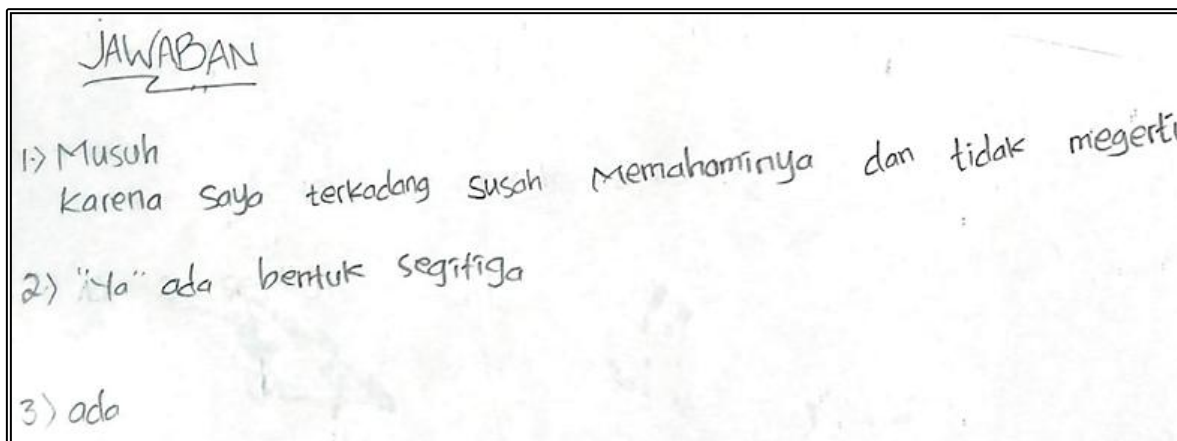 JAWABAN
1.) Musuh
Karena saya terkadang susah Memahaminya dan tidak megerti
2.) "iya" ada bentuk segitiga
3) ada